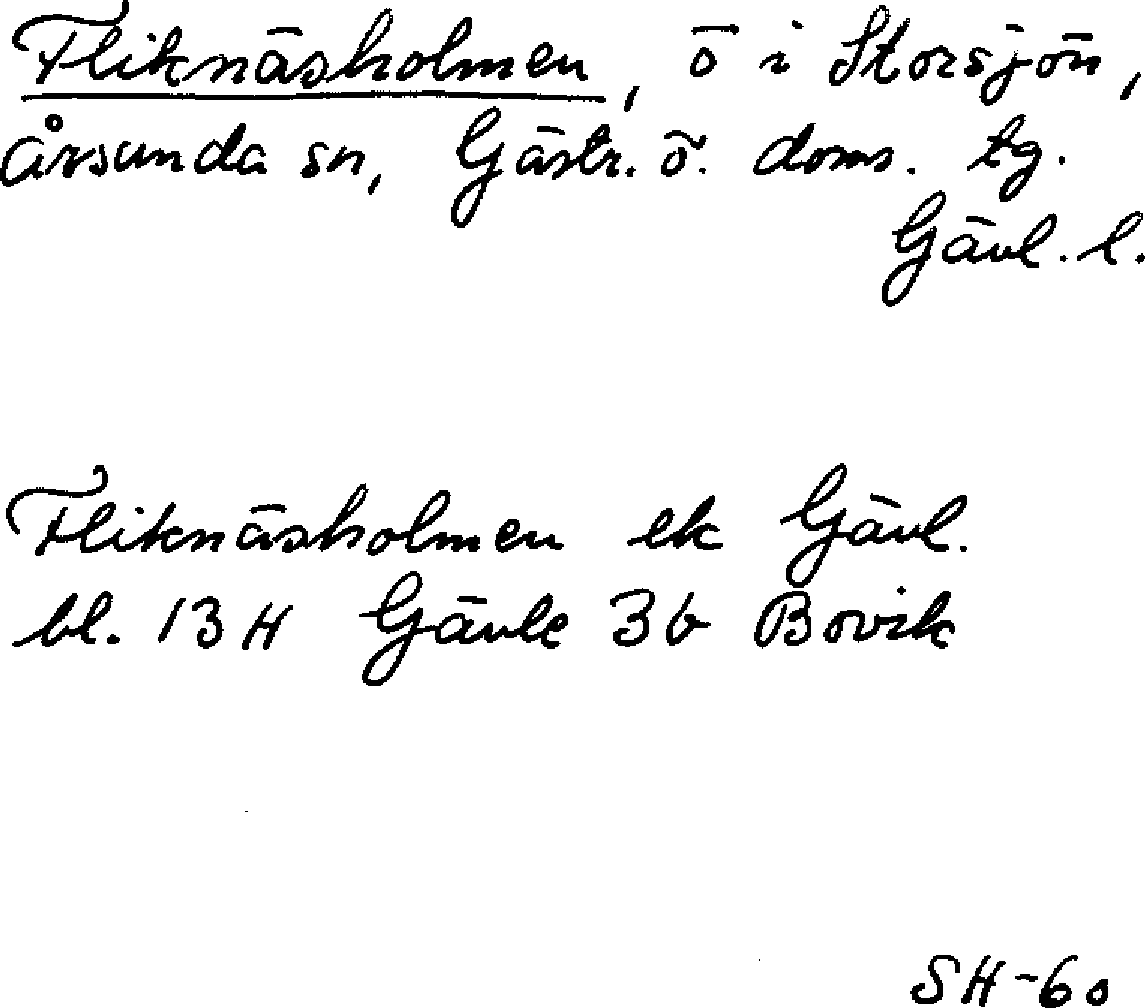 Fliknäsholmen, ö i Storsjön,
Årsunda sn, Gästr. ö. doms. tg.
Gävl. l.
Fliknäsholmen ek Gävl.
bl. 13 H Gävle 3b Bovik
SH-60